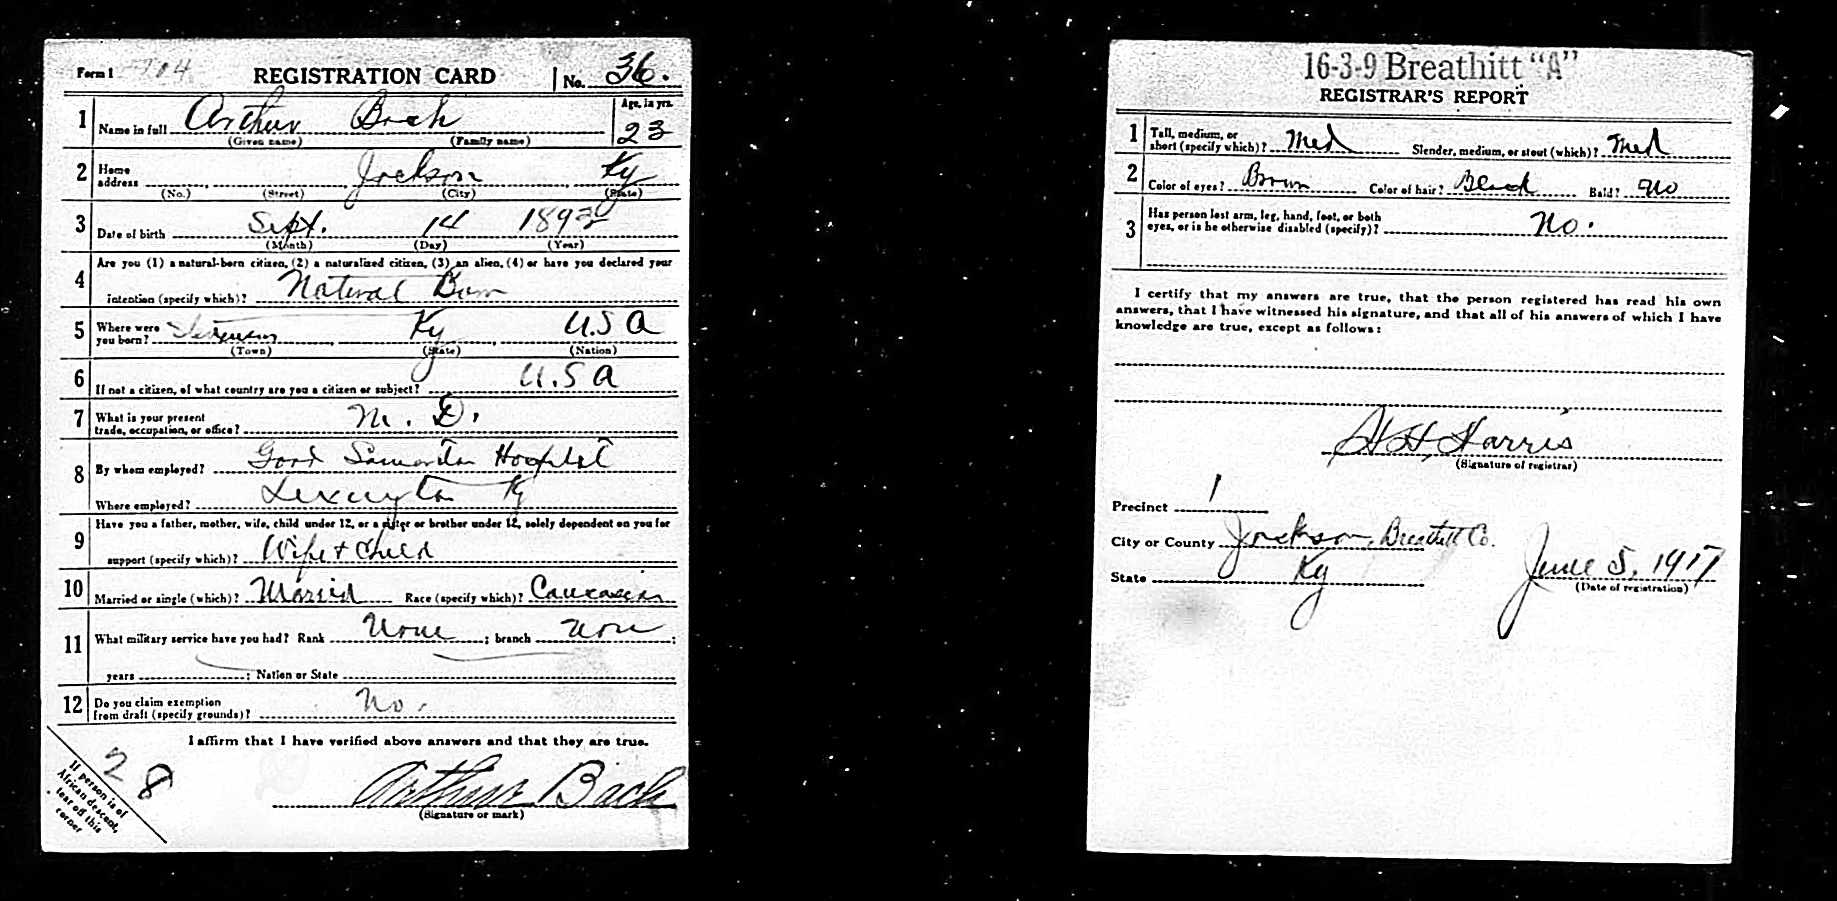 Form 1 704 REGISTRATION CARD No. 36.
1 Name in full Arthur Bach Age, in yrs. 23
(Given name) (Family name)
2 Home address Jackson Ky
(No.) (Street) (City) (State)
3 Date of birth Sept. 14 1893
(Month) (Day) (Year)
4 Are you (1) a natural-born citizen, (2) a naturalized citizen, (3) an alien, (4) or have you declared your
intention (specify which)? Natural Born
5 Where were you born? Ky U.S A
(Town) (State) (Nation)
6 If not a citizen, of what country are you a citizen or subject? U.S A
7 What is your present
trade, occupation, or office? M. D.
8 By whom employed? Good Samaritan Hospital
Where employed? Lexington Ky
9 Have you a father, mother, wife, child under 12, or a sister or brother under 12, solely dependent on you for
support (specify which)? Wife + Child
10 Married or single (which)? Married Race (specify which)? Caucasian
11 What military service have you had? Rank None ; branch None ;
years ; Nation or State
12 Do you claim exemption
from draft (specify grounds)? No.
I affirm that I have verified above answers and that they are true.
Arthur Bach
(Signature or mark)
28
If person is of
African descent,
tear off this
corner
16-3-9 Breathitt "A"
REGISTRAR'S REPORT
1 Tall, medium, or
short (specify which)? Med Slender, medium, or stout (which)? Med
2 Color of eyes? Brown Color of hair? Black Bald? No
3 Has person lost arm, leg, hand, foot, or both
eyes, or is he otherwise disabled (specify)? No.
I certify that my answers are true, that the person registered has read his own
answers, that I have witnessed his signature, and that all of his answers of which I have
knowledge are true, except as follows:
H.H. Harris
(Signature of registrar)
Precinct 1
City or County Jackson, Breathitt Co.
State Ky June 5, 1917
(Date of registration)